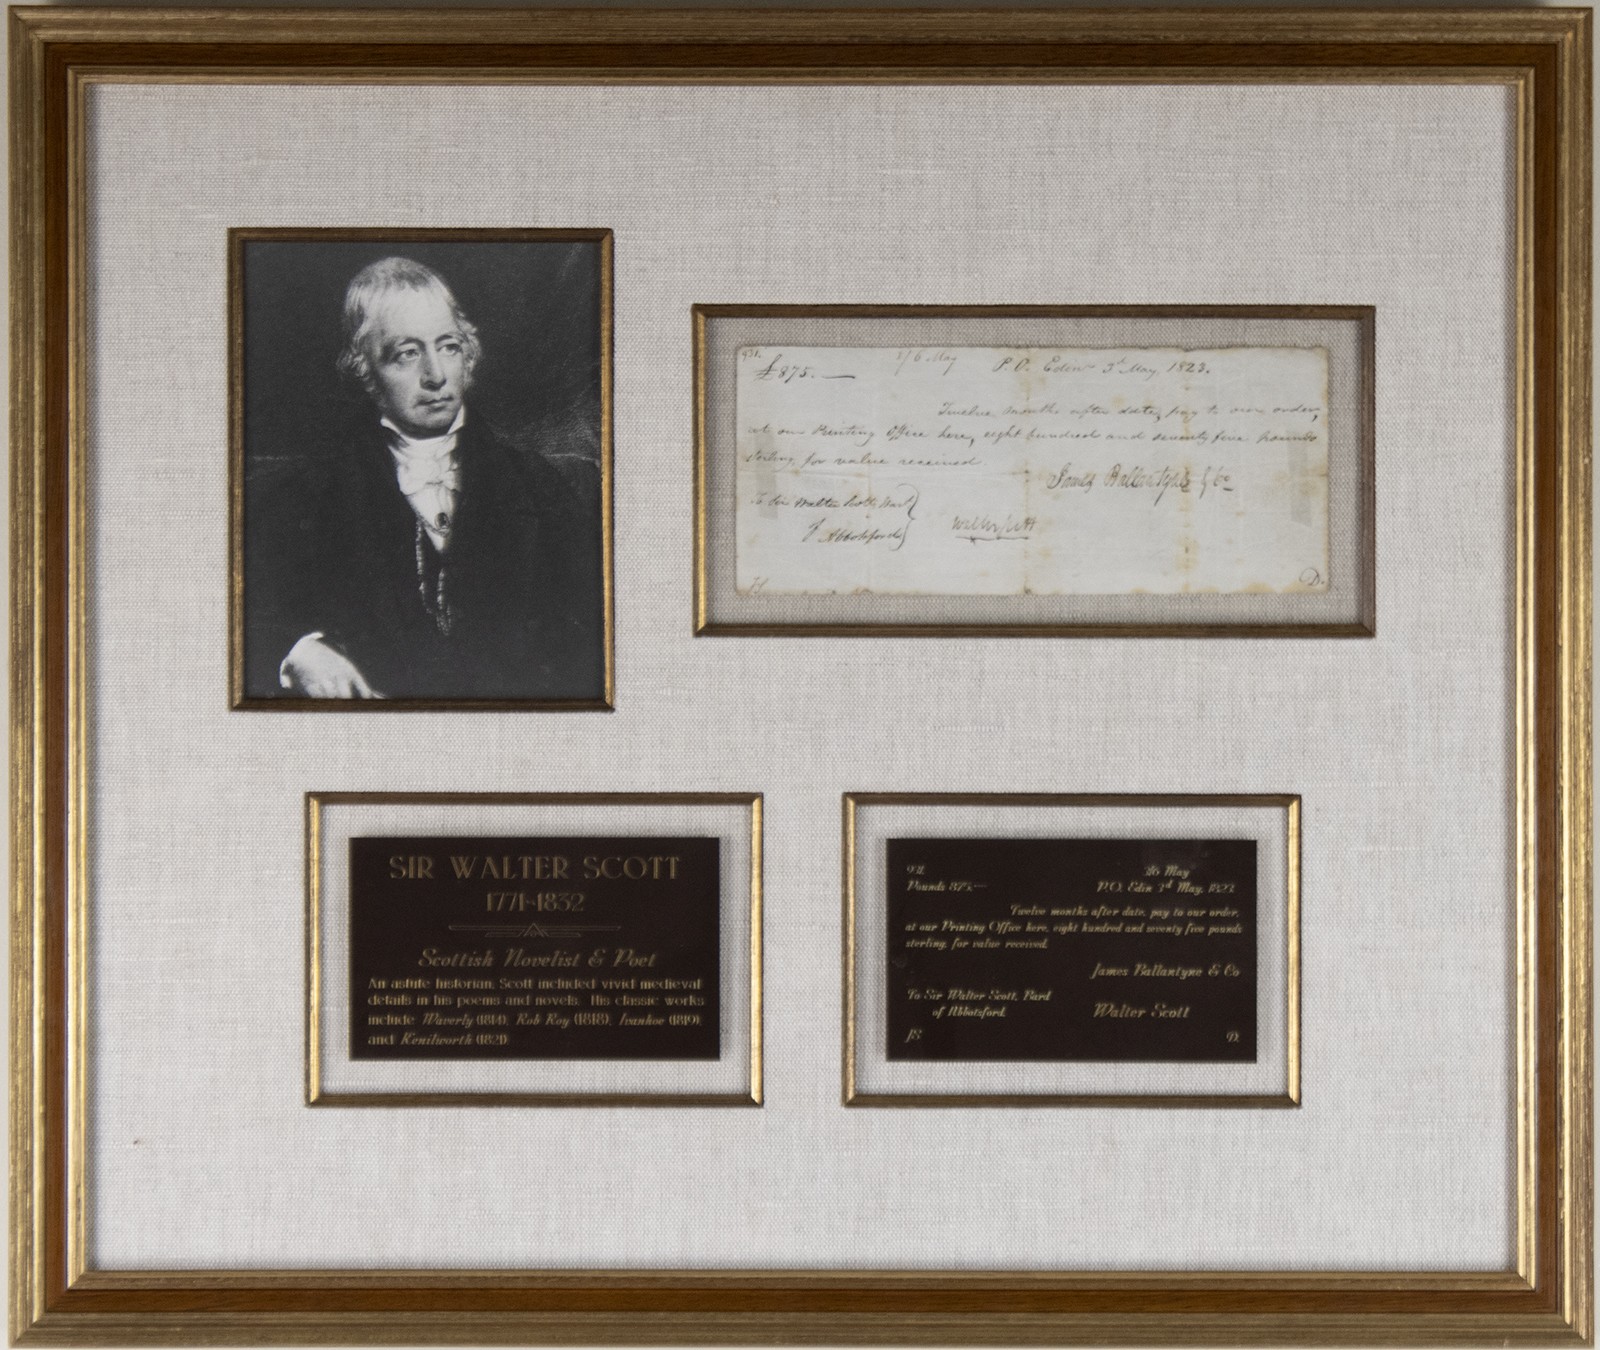 931.
3/6 May
£875.—
P.O. Edinr 3d May, 1823.
Twelve months after date, pay to our order,
at our Printing Office here, eight hundred and seventy five pounds
sterling, for value received.
James Ballantyne & Co
To Sir Walter Scott, Bart
of Abbotsford
Walter Scott
D.
SIR WALTER SCOTT
1771-1832
Scottish Novelist & Poet
An astute historian, Scott included vivid medieval
details in his poems and novels. His classic works
include Waverly (1814), Rob Roy (1818), Ivanhoe (1819),
and Kenilworth (1821)
931.
3/6 May
Pounds 875.—
P.O. Edin 3rd May, 1823.
Twelve months after date, pay to our order,
at our Printing Office here, eight hundred and seventy five pounds
sterling, for value received.
James Ballantyne & Co
To Sir Walter Scott, Bard
of Abbotsford.
Walter Scott
JS
D.